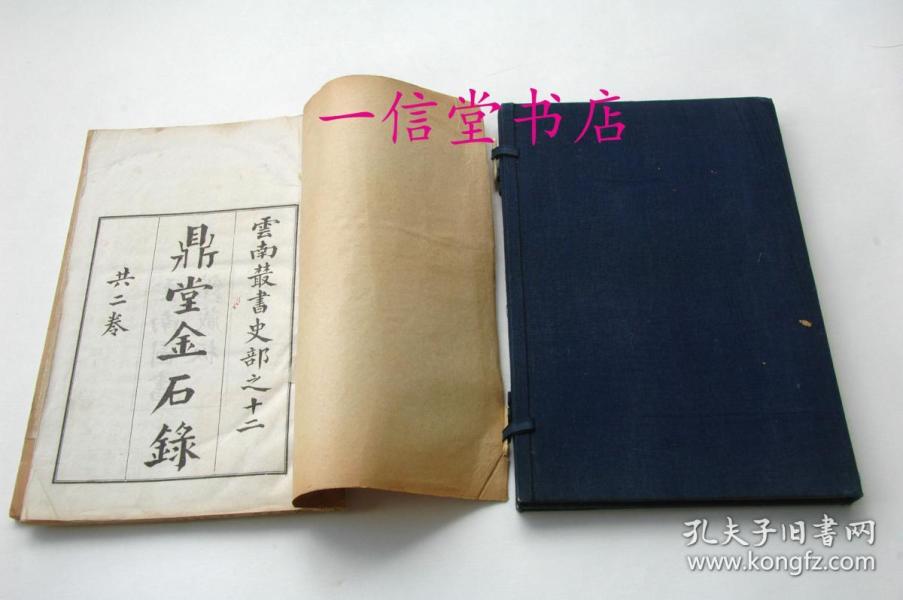 一信堂书店
雲南叢書史部之十二
鼎堂金石錄
共二卷
孔夫子旧书网
www.kongfz.com